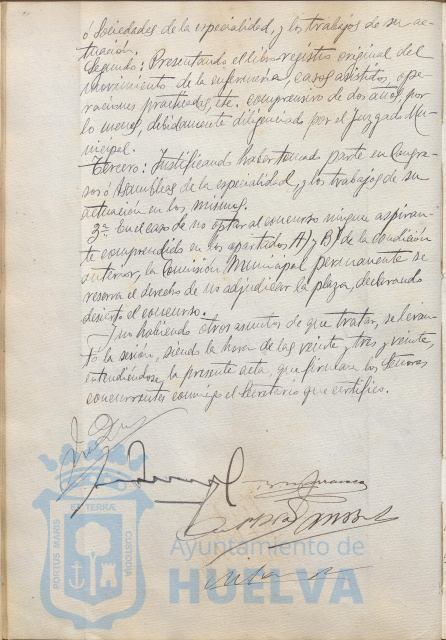 ó Sociedades de la especialidad, y los trabajos de su ac-
tuación.
Segundo: Presentando el libro registro original del
movimiento de la enfermería, casos asistidos, ope-
raciones practicadas, etc. comprensivo de dos años, por
lo menos, debidamente diligenciado por el Juzgado Mu-
nicipal.
Tercero: Justificando haber tomado parte en Congre-
sos ó Asambleas de la especialidad, y los trabajos de su
actuación en los mismos.
3ª En el caso de no optar al concurso ningun aspiran-
te comprendido en los apartados A) y B) de la condición
anterior, la Comisión Municipal permanente se
reserva el derecho de no adjudicar la plaza, declarando
desierto el concurso.
Y no habiendo otros asuntos de que tratar, se levan-
tó la sesión, siendo la hora de las veinte y tres y veinte,
extendiéndose la presente acta, que firman los Señores
concurrentes conmigo el Secretario que certifico.
PORTUS MARIS ET TERRÆ CUSTODIA
Ayuntamiento de
HUELVA